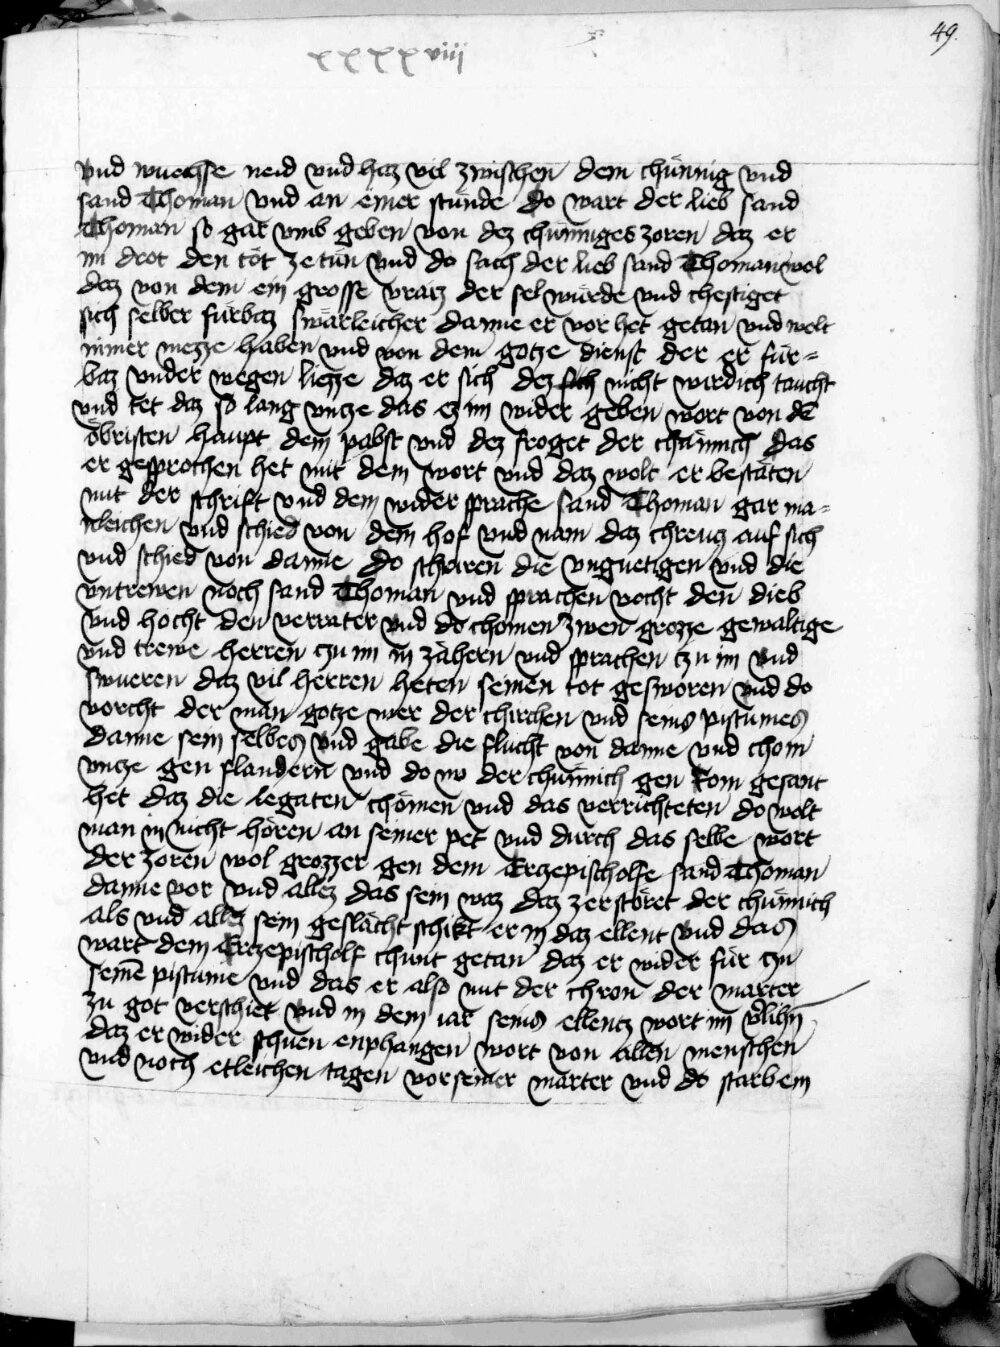 49.
xxxxviii
vnd wuechsse neid vnd haz vil zwischen dem chünnig vnd
sand Thoman vnd an einer stunde do wart der lieb sand
Thoman so gar vmb geben von dez chünniges zoren daz er
im drot den töt ze tün vnd do sach der lieb sand Thoman wol
daz von dem ein grosse vraiz der sel würde vnd chestiget
sich selber fürbaz swärleicher danne er vor het getan vnd wolt
nimer mezze haben vnd von dem gotze dienst der er für=
baz vnder wegen liezze daz er sich dez nicht wirdich taucht
vnd tet daz so lang vncze das ez im wider geben wort von dē
öbristen haupt dem pabst vnd dez froget der chünnich das
er gesprochen het mit dem wort vnd daz wolt er bestäten
mit der schrift vnd dem wider sprache sand Thoman gar ma=
nleichen vnd schied von dem hof vnd nam daz chreucz auf sich
vnd schied von danne do schriren die vnguetigen vnd die
vntrewen noch sand Thoman vnd sprachen vocht den dieb
vnd hocht den verrater vnd do chomen zwen grozze gewaltige
vnd trewe herren czu im in zähern vnd sprachen czu im vnd
swueren daz vil herren heten seinen tot gesworen vnd do
vorcht der man gotze mer der chirchen vnd seins pistumes
danne sein selbes vnd gabe die flucht von danne vnd chom
vncze gen flandern vnd do no der chünnich gen Rom gesant
het daz die legaten chömen vnd das verrichteten do wolt
man in nicht hören an seiner pet vnd durch das selbe wort
der zoren wol grozzer gen dem Erczepischolfe sand Thoman
danne vor vnd allez das sein waz daz zerstöret der chünnich
als vnd allez sein geslächt schikt er in daz ellent vnd das
wart dem Erczepischolf chunt getan daz er wider für czu
seinē pistume vnd das er also mit der chron der marter
zu got verschiet vnd in dem iar seins ellentz wort im v̄lihn
daz er wider schuen enphangen wort von allen menschen
vnd noch etleichen tagen vor seiner marter vnd do starb ein